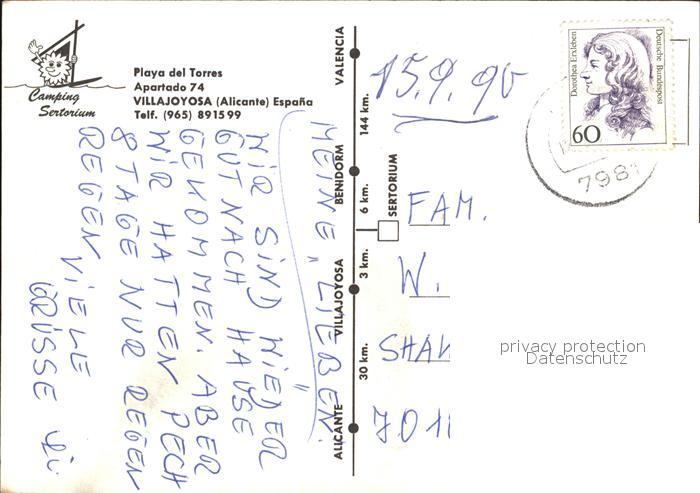 Camping
Sertorium
Playa del Torres
Apartado 74
VILLAJOYOSA (Alicante) España
Telf. (965) 891599
MEINE „LIEBEN"
WIR SIND WIEDER
GUT NACH HAUSE
GEKOMMEN. ABER
WIR HATTEN PECH
8 TAGE NUR REGEN
REGEN
VIELE
GRÜSSE
VALENCIA
144 km.
BENIDORM
6 km.
SERTORIUM
3 km.
VILLAJOYOSA
30 km.
ALICANTE
15.9.90
Dorothea Erxleben
Deutsche Bundespost
60
798
FAM.
W.
privacy protection
Datenschutz